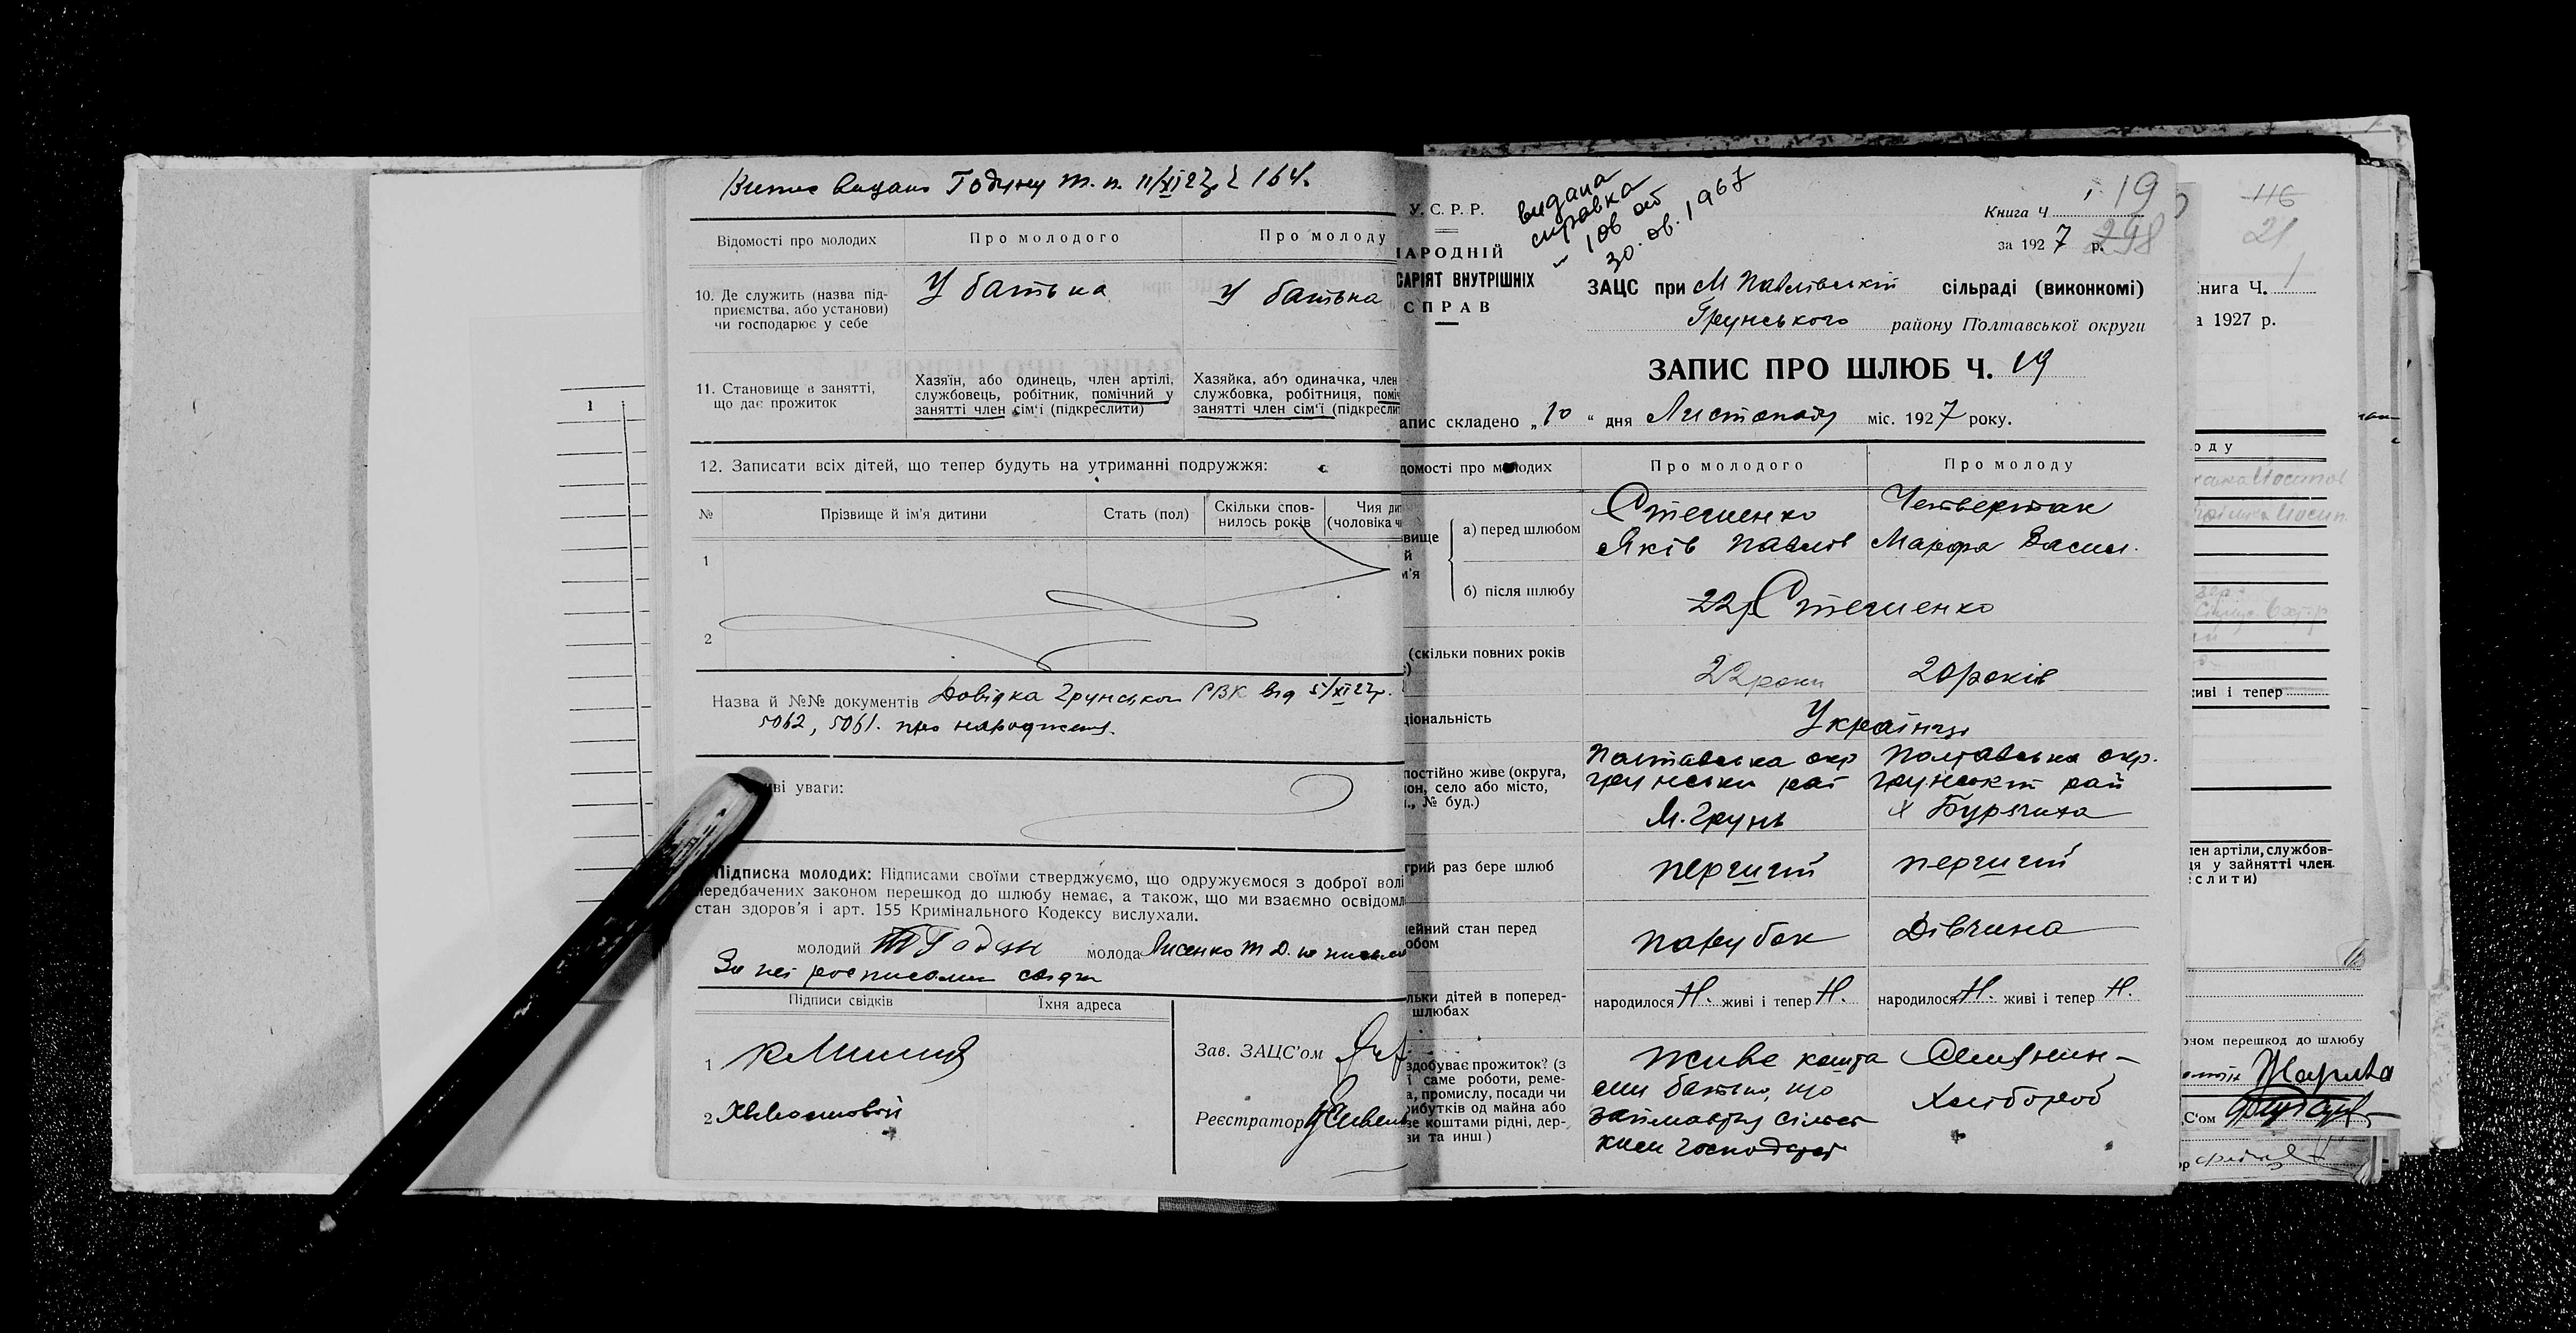 Випис видано Годуну Т. п. 11/XI 27р. 164.
Відомості про молодих
Про молодого
Про молоду
10. Де служить (назва під-
приємства, або установи)
чи господарює у себе
У батька
У батька
11. Становище в занятті,
що дає прожиток
Хазяїн, або одинець, член артілі,
службовець, робітник, помічний у
занятті член сім'ї (підкреслити)
Хазяйка, або одиначка, член
службовка, робітниця, поміч
занятті член сім'ї (підкресли
12. Записати всіх дітей, що тепер будуть на утриманні подружжя:
№
Прізвище й ім'я дитини
Стать (пол)
Скільки спов-
нилось років
Чия ди
(чоловіка ч
1
2
Назва й №№ документів Довідка Грунської РВК від 5/XI 27р.
5062, 5061. про народження.
ві уваги:
Підписка молодих: Підписами своїми стверджуємо, що одружуємося з доброї волі
передбачених законом перешкод до шлюбу немає, а також, що ми взаємно освідомл
стан здоров'я і арт. 155 Кримінального Кодексу вислухали.
молодий Т Годун молода Лисенко Т Д. не
За неї росписались свідки
Підписи свідків
Їхня адреса
1
2
Зав. ЗАЦС'ом
Реєстратор
1
У. С. Р. Р.
НАРОДНІЙ
САРІЯТ ВНУТРІШНІХ
СПРАВ
видана
справка
106 от
30. 08. 1967
Книга Ч 19
за 1927 р. 298
ЗАЦС при М Павлівській сільраді (виконкомі)
Грунського району Полтавської округи
ЗАПИС ПРО ШЛЮБ Ч. 19
апис складено „10" дня Листопаду міс. 1927 року.
домості про молодих
Про молодого
Про молоду
звище
й
м'я
а) перед шлюбом
Стеценко
Яків Павлів
Четвертак
Марфа Васил.
б) після шлюбу
22р Стеценко
(скільки повних років
22 роки
20 років
ціональність
Українці
постійно живе (округа,
он, село або місто,
., № буд.)
Полтавська окр
Грунськи рай
М. Грунь
Полтавська окр.
Грунський рай
х Бурячиха
трий раз бере шлюб
перший
перший
ейний стан перед
юбом
парубок
Дівчина
льки дітей в поперед-
шлюбах
народилося Н. живі і тепер Н.
народилося Н. живі і тепер Н.
здобуває прожиток? (з
ї саме роботи, реме-
а, промислу, посади чи
рибутків од майна або
ве коштами рідні, дер-
ви та инш)
Живе кошта
ми батька, що
займається сільсь
ким господарст
Селянин-
Хлібороб
116
21
нига Ч. 1
а 1927 р.
оду
иві і тепер
лен артілі, службов-
ця у зайнятті член
слити)
оном перешкод до шлюбу
С'ом